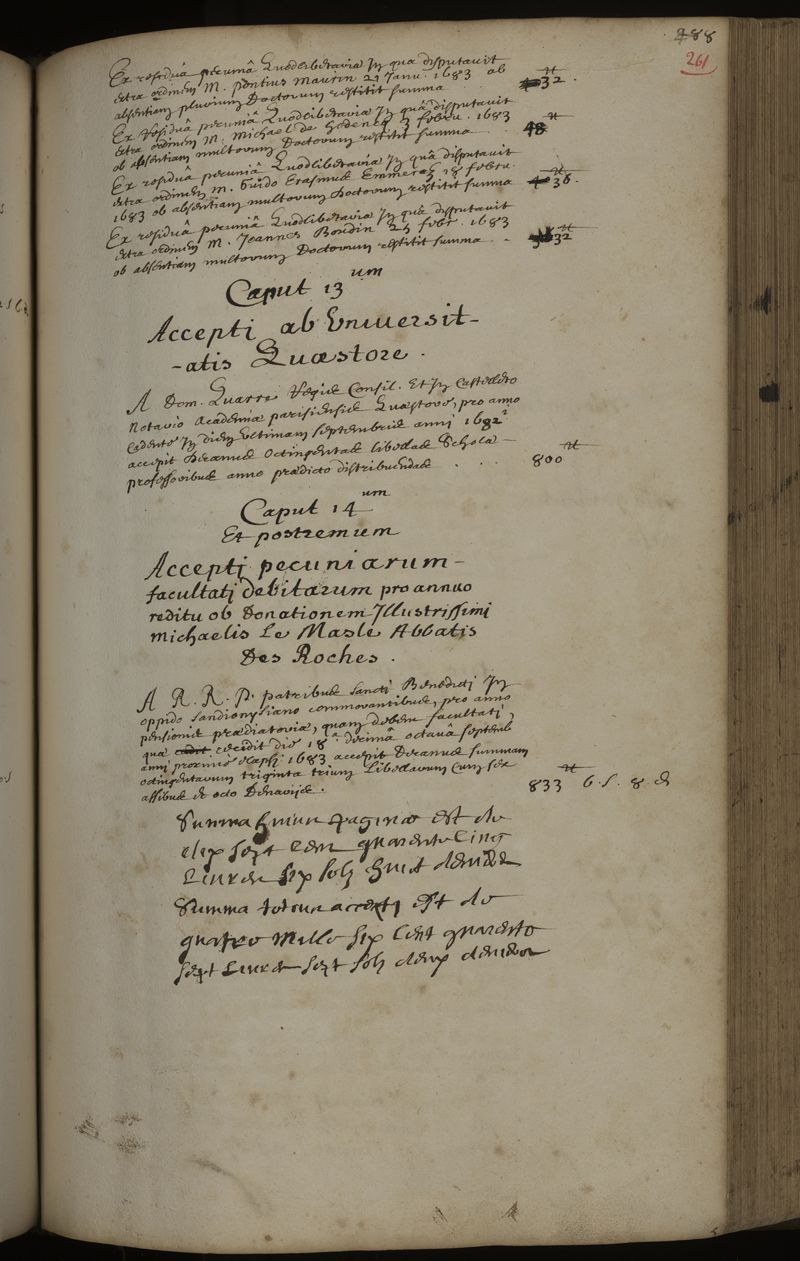 488
261
Ex residuâ pecuniâ Quodlibetaria In qua disputavit
extra ordinem M. Pontius Maurin 21 Janu. 1683 ob
absentiam plurium Doctorum restitit summa 32.
Ex residuâ pecuniâ Quodlibetaria In quâ disputavit
extra ordinem M. Michael de 3 febru. 1683
ob absentiam multorum Doctorum restitit summa 48
Ex residuâ pecuniâ Quodlibetaria In quâ disputavit
extra ordinem M. Guido Erasmus Emmerez 18 febru.
1683 ob absentiam multorum Doctorum restitit summa 36.
Ex residuâ pecuniâ Quodlibetaria In quâ disputavit
extra ordinem M. Joannes Boudin 25 febr. 1683
ob absentiam multorum Doctorum restitit summa 32
Caput 13um
Accepti ab Uniuersit-
-atis Quæstore.
A Dom. Quarré Regis Consil. Et In Castelleto
Notario Academiæ parisiensis Quæstore, pro anno
cedente In diem ultimam septembris anni 1682
accepit Decanus Octingentas libellas Schola-
professoribus anno prædicto distribuendas . . . 800
Caput 14um
Et postremum
Accepti pecuniarum
facultati debitarum pro annuo
reditu ob Donationem Illustrissimi
Michaelis Le Masle Abbatis
Des Roches.
A R. R. P. patribus sancti Benedicti In
oppido sandionysiano commorantibus, pro anno
pensionis prædiatoriæ, quam debent facultati,
quæ cecidit die 18â decimâ octauâ septemb
anni proximè elapsi 1683 accepit Decanus summam
octingentarum triginta trium Libellarum Cum sex
assibus et octo Denarijs. 833 6 s. 8 d
Summa huius paginæ est de
dix sept cent quarente cinq
Liures six sols huit deniers
Summa totius accepti est de
quatre mille six Cent quarente
sept Liures sept sols deux deniers